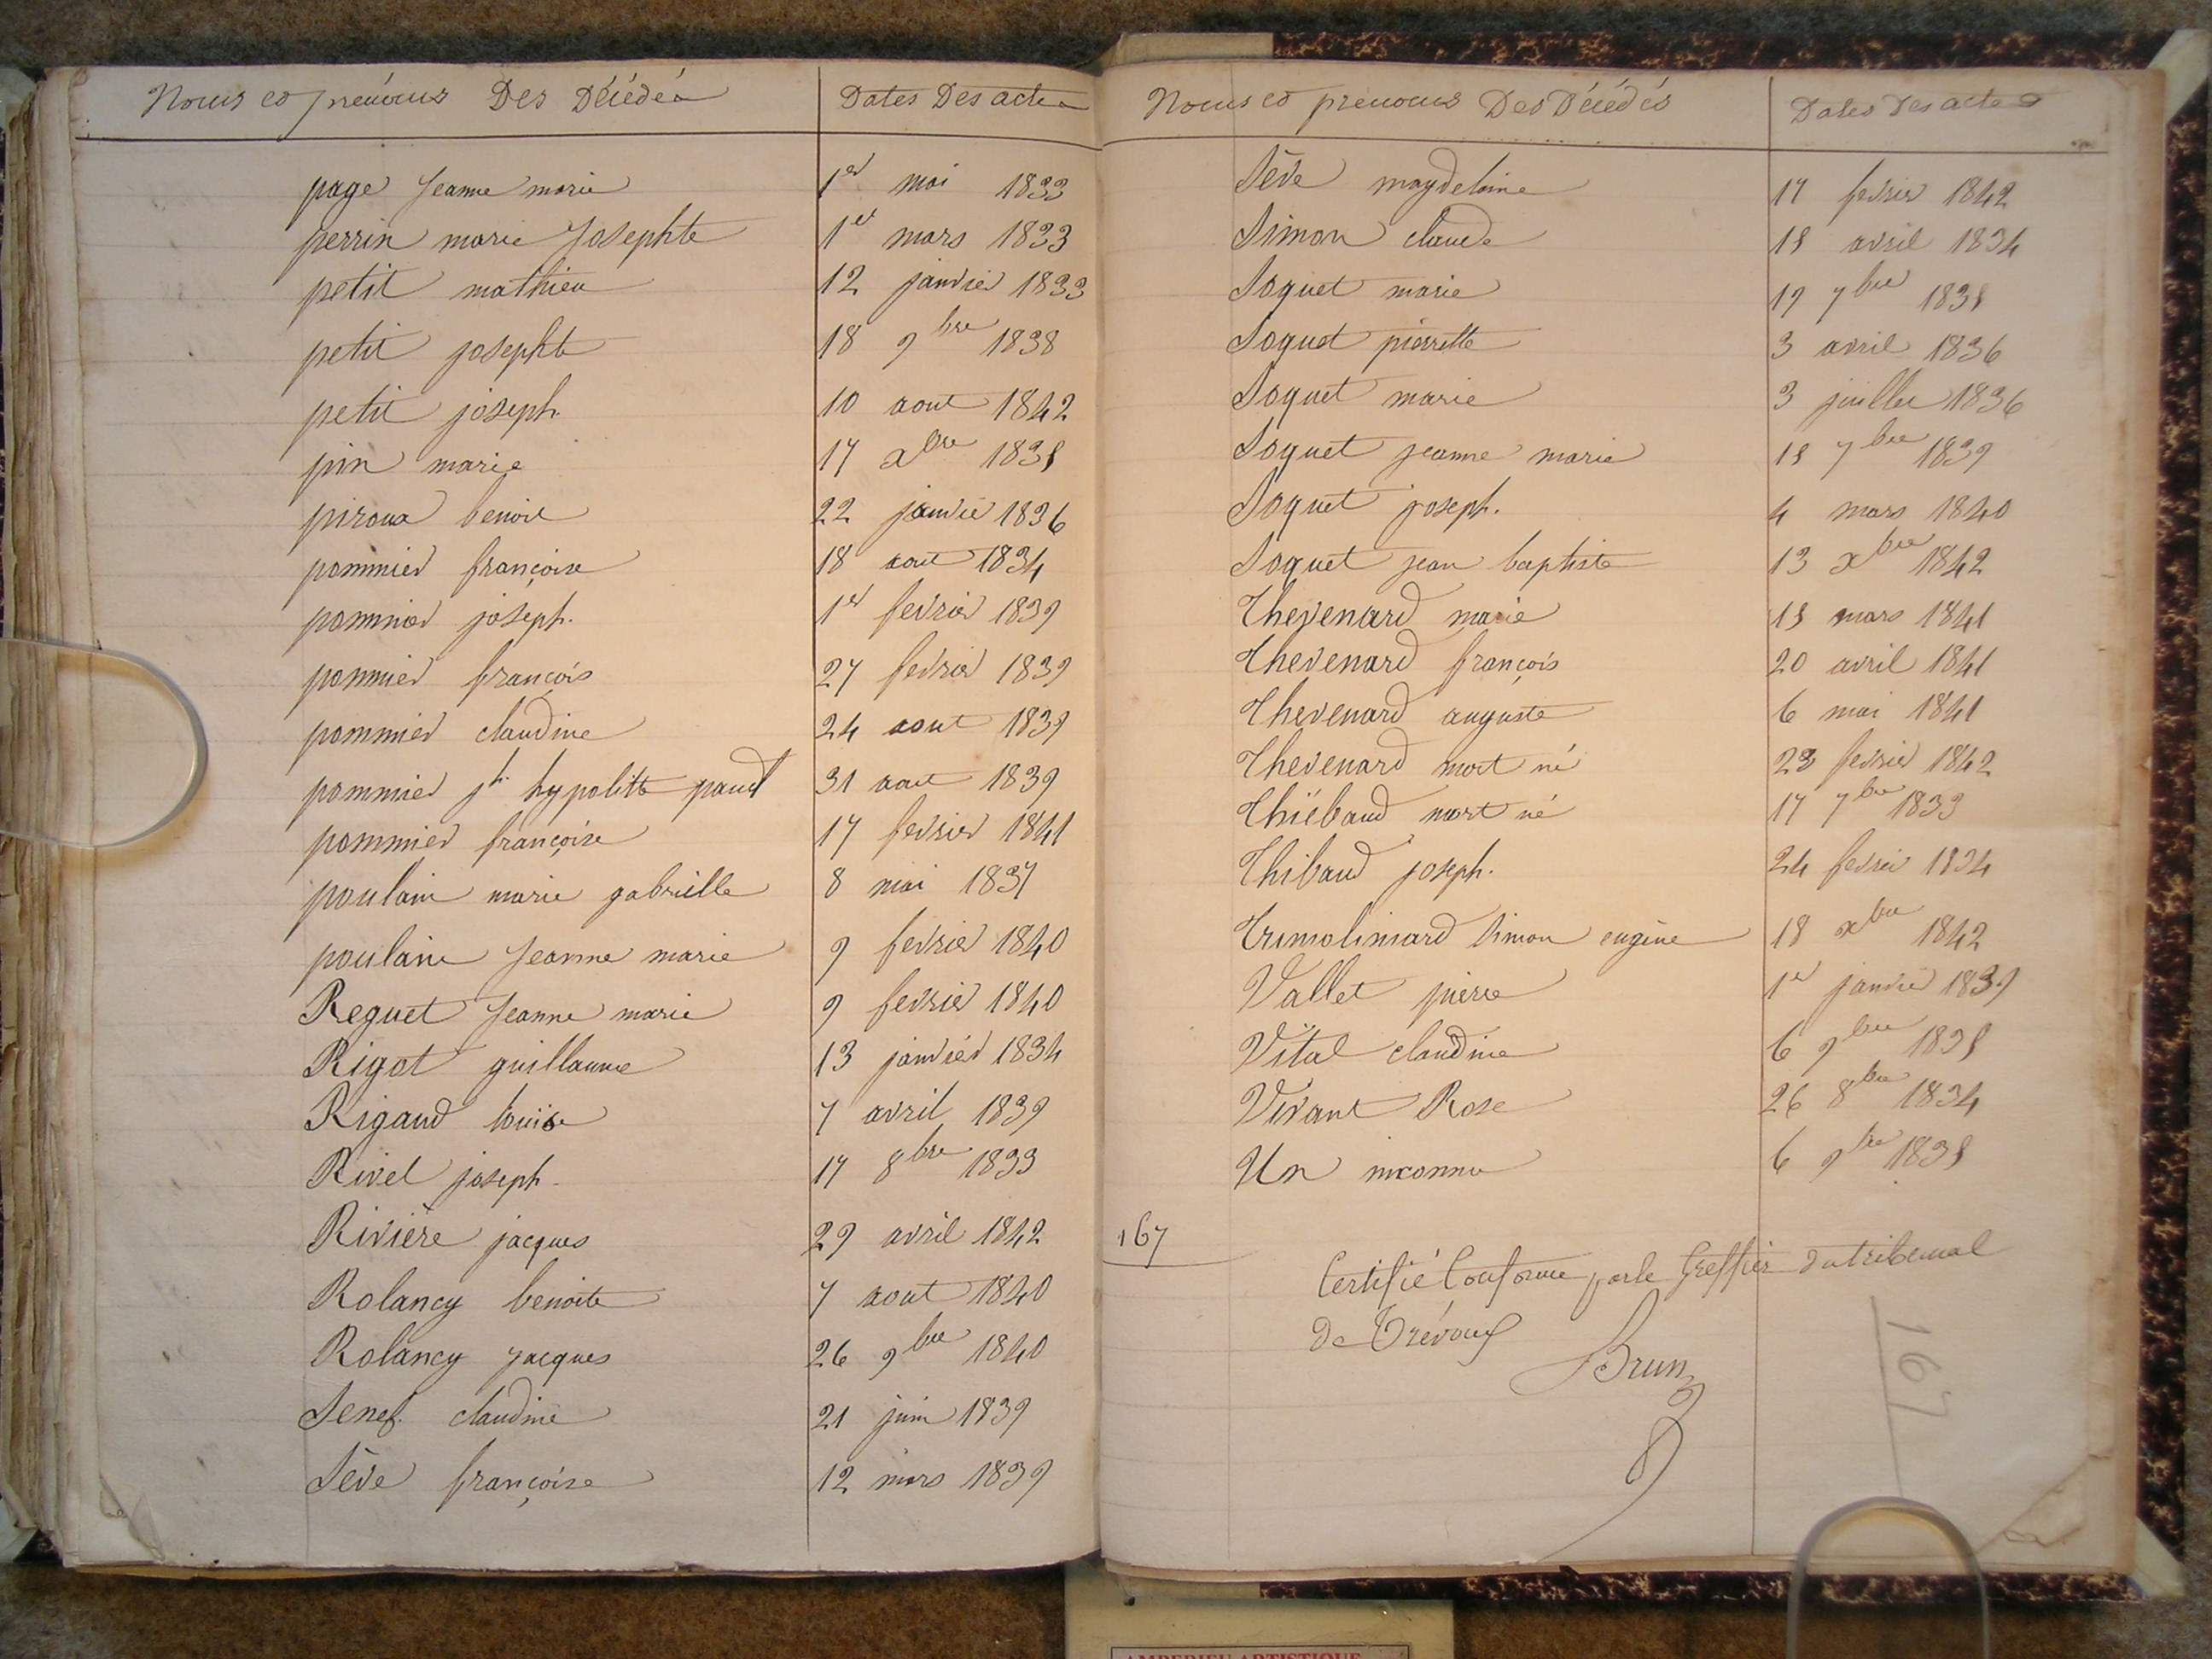 Noms et prénoms Des Décédés Dates Des actes
page jeanne marie 1er mai 1833
perrin marie josephte 1er mars 1833
petit mathieu 12 janvier 1833
petit josephte 18 9bre 1838
petit joseph. 10 aout 1842
pin marie 17 xbre 1838
piroux benoit 22 janvier 1836
pommier françoise 18 aout 1834
pommier joseph. 1er fevrier 1839
pommier françois 27 fevrier 1839
pommier claudine 24 aout 1839
pommier jh hypolitte paul 31 aout 1839
pommier françoise 17 fevrier 1841
poulain marie gabrielle 8 mai 1837
poulain jeanne marie 9 fevrier 1840
Reguet jeanne marie 9 fevrier 1840
Rigot guillaume 13 janvier 1834
Rigaud louise 7 avril 1839
Rivel joseph. 17 8bre 1833
Rivière jacques 29 avril 1842
Rolancy benoite 7 aout 1840
Rolancy jacques 26 9bre 1840
Senef. claudine 21 juin 1839
Sève françoise 12 mars 1839
Noms et prénoms Des Décédés Dates Des actes
Sève magdelaine 17 fevrier 1842
Simon claude 18 avril 1834
Soquet marie 19 7bre 1838
Soquet pierrette 3 avril 1836
Soquet marie 3 juillet 1836
Soquet jeanne marie 18 7bre 1839
Soquet joseph. 4 mars 1840
Soquet jean baptiste 13 xbre 1842
Thevenard marie 18 mars 1841
Thevenard françois 20 avril 1841
Thevenard auguste 6 mai 1841
Thevenard mort né 23 fevrier 1842
Thiébaud mort né 17 7bre 1833
Thibaud joseph. 24 fevrier 1834
Trimoliniard Simon eugène 18 xbre 1842
Vallet pierre 1er janvier 1839
Vital claudine 6 9bre 1838
Vivant Rose 26 8bre 1834
Un inconnu 6 9bre 1838
167
Certifié Conforme par le Greffier du tribunal
De Trévoux
Brun
167
AMBERIEU ARTISTIQUE